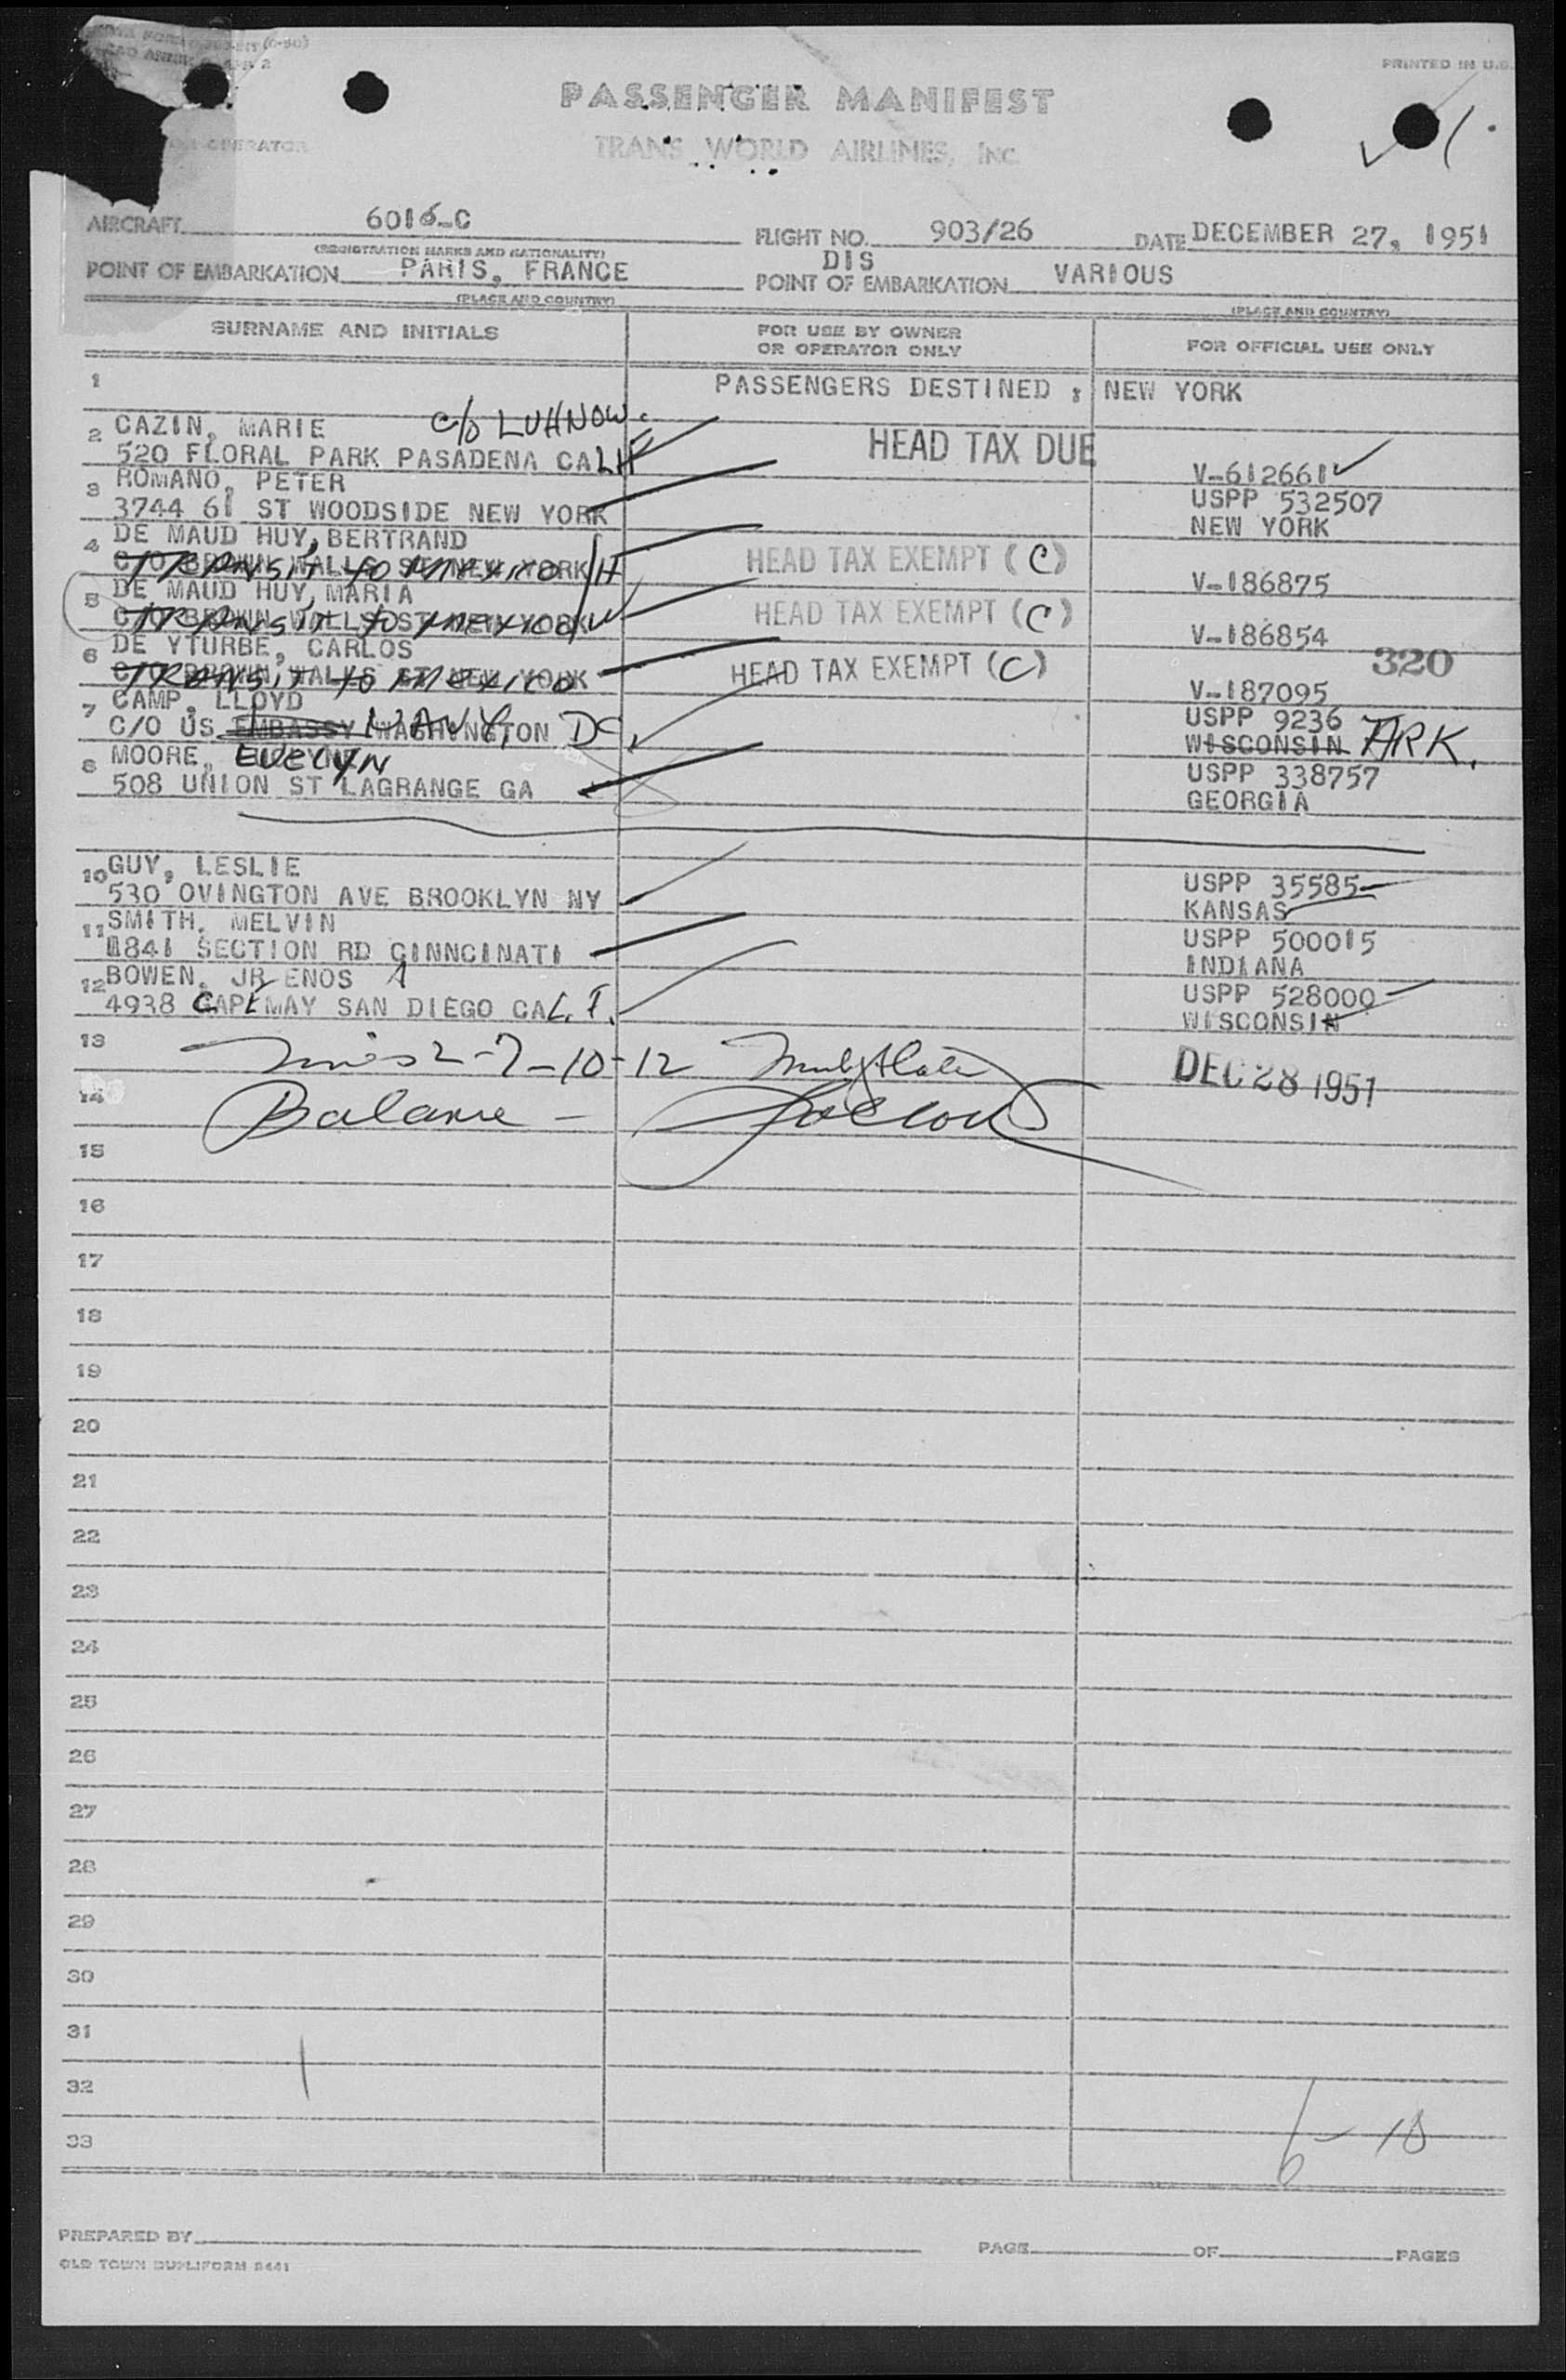 PRINTED IN U.S.
PASSENGER MANIFEST
TRANS WORLD AIRLINES, INC.
OPERATOR
AIRCRAFT 6016-C FLIGHT NO. 903/26 DATE DECEMBER 27, 1951
(REGISTRATION MARKS AND NATIONALITY)
DIS
POINT OF EMBARKATION PARIS, FRANCE POINT OF EMBARKATION VARIOUS
(PLACE AND COUNTRY) (PLACE AND COUNTRY)
SURNAME AND INITIALS FOR USE BY OWNER OR OPERATOR ONLY FOR OFFICIAL USE ONLY
1 PASSENGERS DESTINED : NEW YORK
2 CAZIN, MARIE c/o LUHNOW. HEAD TAX DUE
520 FLORAL PARK PASADENA CALIF V-612661
3 ROMANO, PETER USPP 532507
3744 61 ST WOODSIDE NEW YORK NEW YORK
4 DE MAUD HUY, BERTRAND HEAD TAX EXEMPT (C)
C/O BROWN WALLS ST NEW YORK TRANSIT TO MEXICO /H V-186875
5 DE MAUD HUY, MARIA HEAD TAX EXEMPT (C)
C/O BROWN WALLS ST NEW YORK TRANSIT TO MEXICO /W V-186854
6 DE YTURBE, CARLOS HEAD TAX EXEMPT (C) 320
C/O BROWN WALLS ST NEW YORK TRANSIT TO MEXICO V-187095
7 CAMP, LLOYD USPP 9236
C/O US EMBASSY NAVY, WASHINGTON DC WISCONSIN ARK.
8 MOORE, EVELYN USPP 338757
508 UNION ST LAGRANGE GA GEORGIA
10 GUY, LESLIE USPP 35585
530 OVINGTON AVE BROOKLYN NY KANSAS
11 SMITH, MELVIN USPP 500015
1841 SECTION RD CINNCINATI INDIANA
12 BOWEN, JR ENOS A USPP 528000
4938 CAPE MAY SAN DIEGO CALIF. WISCONSIN
13 2-7-10-12 DEC 28 1951
14 Balance -
15
16
17
18
19
20
21
22
23
24
25
26
27
28
29
30
31
32
33
6-18
PREPARED BY PAGE OF PAGES
OLD TOWN DUPLIFORM 8441